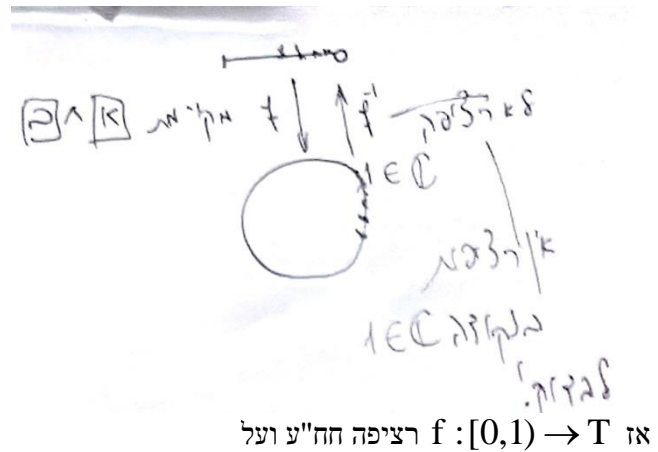 f מקיימת א ∧ ב
f⁻¹ לא רציפה
1 ∈ ℂ
אין רציפות
בנקודה 1 ∈ ℂ
לבדוק!
אז f : [0,1) → T רציפה חח"ע ועל